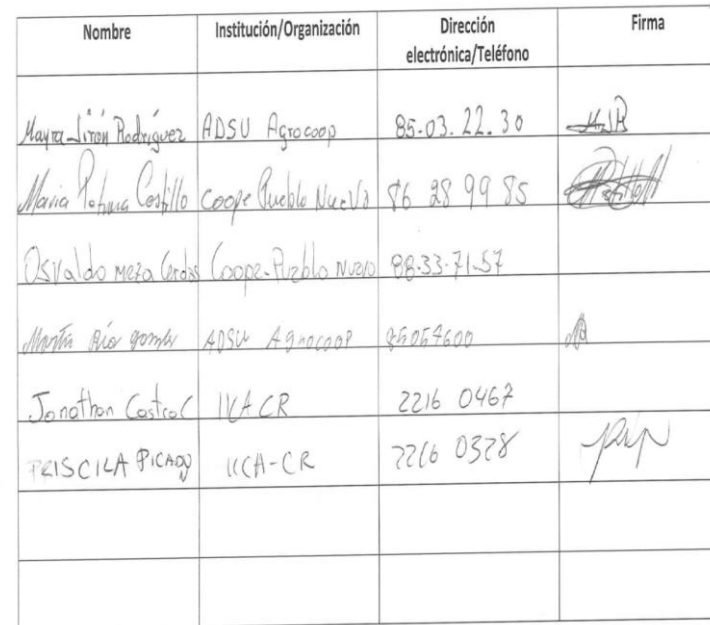 Nombre Institución/Organización Dirección electrónica/Teléfono Firma
Mayra Jirón Rodríguez ADSU Agrocoop 85-03.22.30
Maria Castillo Coope Pueblo Nuevo 86 28 99 85
Osvaldo Meza Cerdas Coope-Pueblo Nuevo 88-33-71-57
Martín ADSU Agrocoop 85057600
Jonathan Castro C IICA CR 2216 0467
PRISCILA PICADO IICA-CR 2216 0328